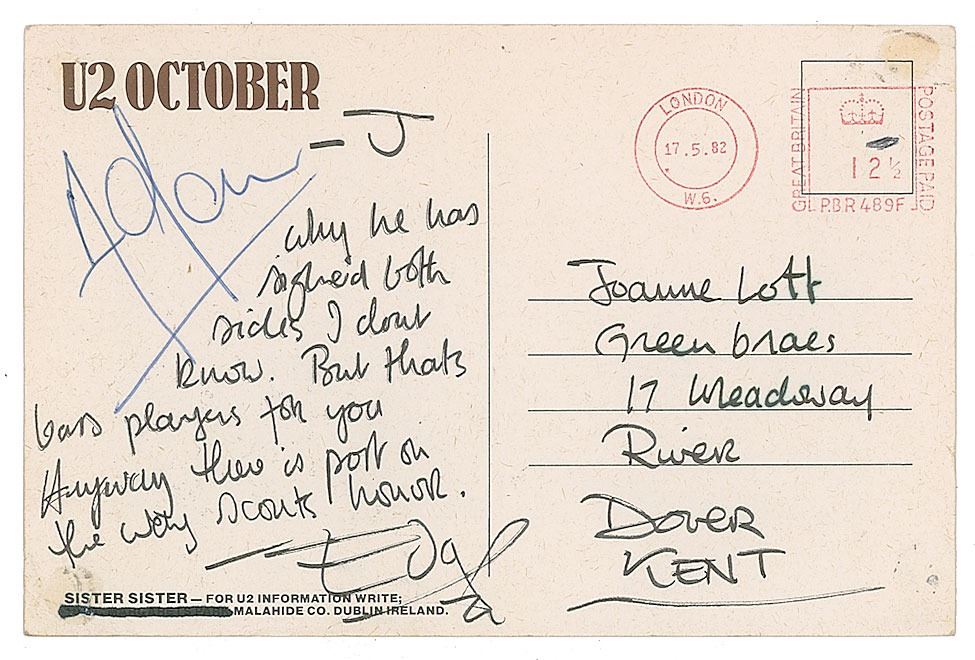 U2 OCTOBER
Adam
– J
why he has
signed both
sides I dont
know. But thats
bass players for you
Anyway there is post on
the way scouts honor.
Edge
SISTER SISTER — FOR U2 INFORMATION WRITE;
MALAHIDE CO. DUBLIN IRELAND.
LONDON
17.5.82
W.6.
GREAT BRITAIN
POSTAGE PAID
12½
P.B.R 489F
Joanne Lott
Green braes
17 Meadway
River
DOVER
KENT